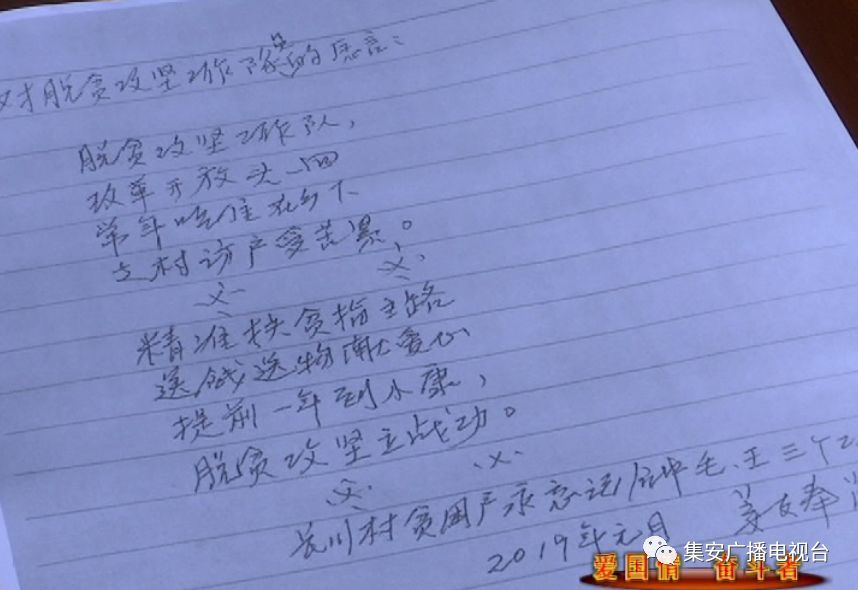 对脱贫攻坚工作队的感言：
脱贫攻坚工作队，
改革开放头一回
常年吃住在乡下
走村访户受苦累。
精准扶贫指出路
送钱送物献爱心
提前一年到小康，
脱贫攻坚立战功。
长川村贫困户永忘记 毛、王三个
2019年元月 姜
集安广播电视台
爱国情 奋斗者